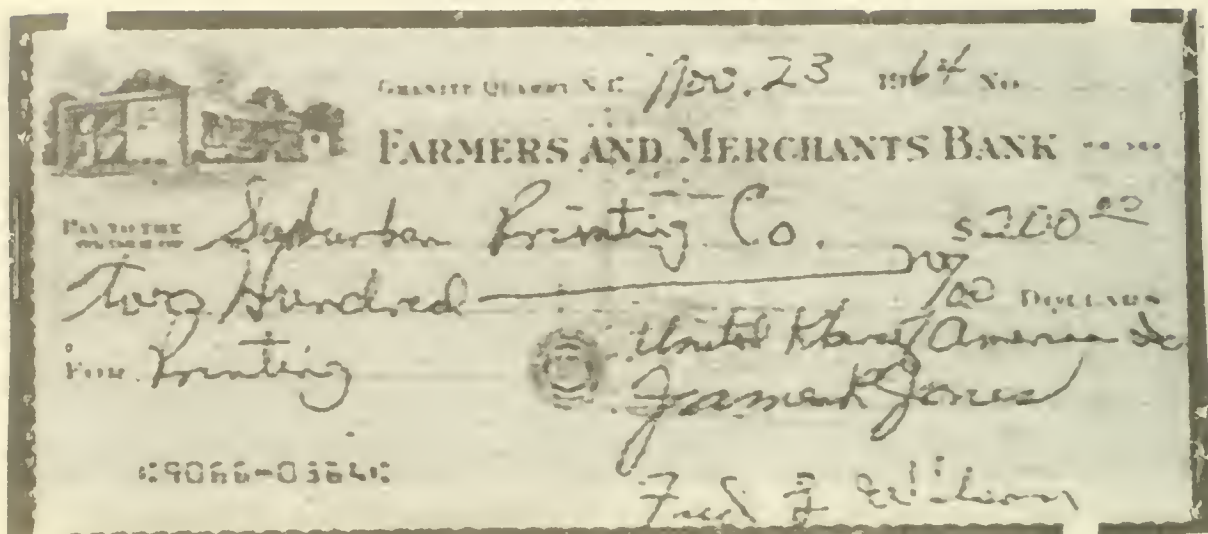 GRANITE QUARRY N.C. Nov. 23 1964 No.
FARMERS AND MERCHANTS BANK
PAY TO THE
ORDER OF Suburban Printing Co. $200 00
Two Hundred no/100 DOLLARS
FOR Printing
United Klans America Inc
James R Jones
Fred L Wilson
⑆9066⑉0364⑆